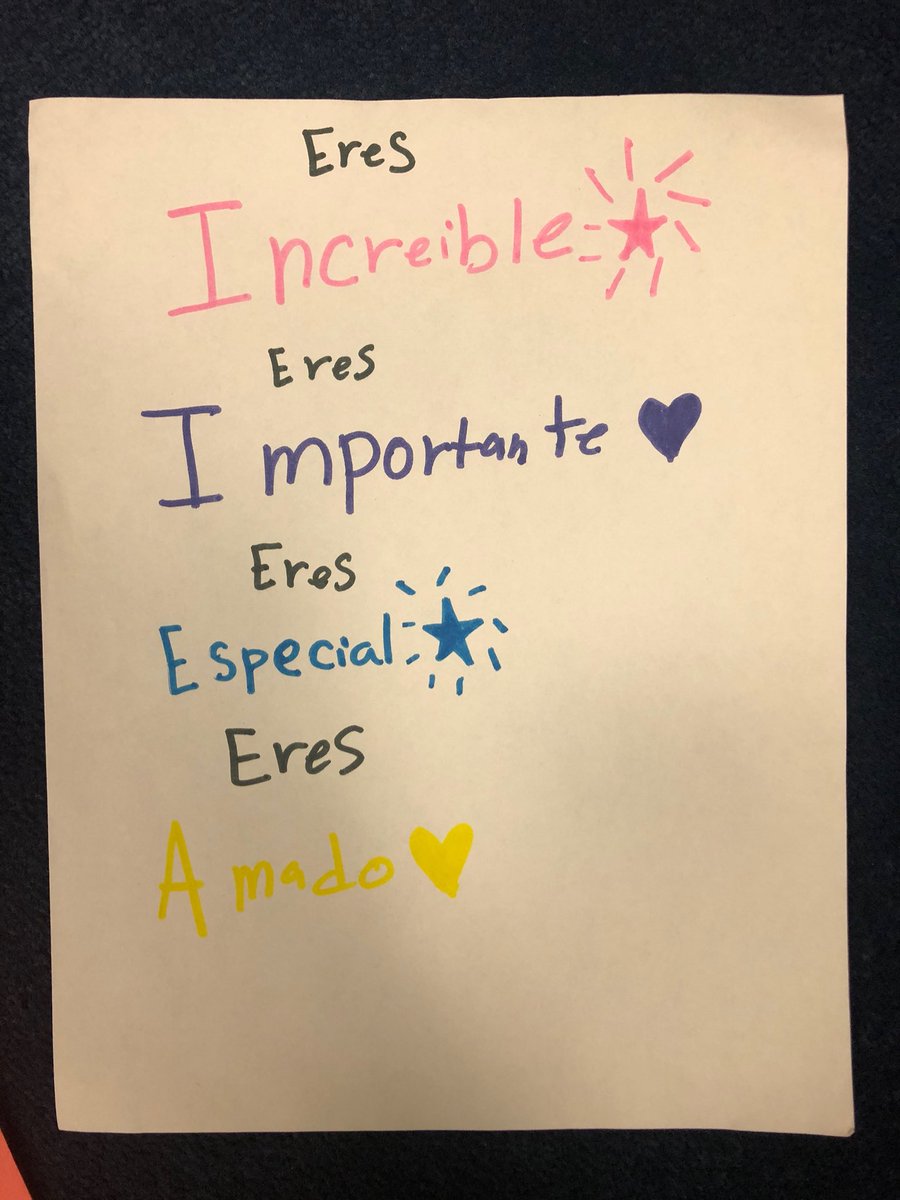 Eres
Increible
Eres
Importante
Eres
Especial
Eres
Amado